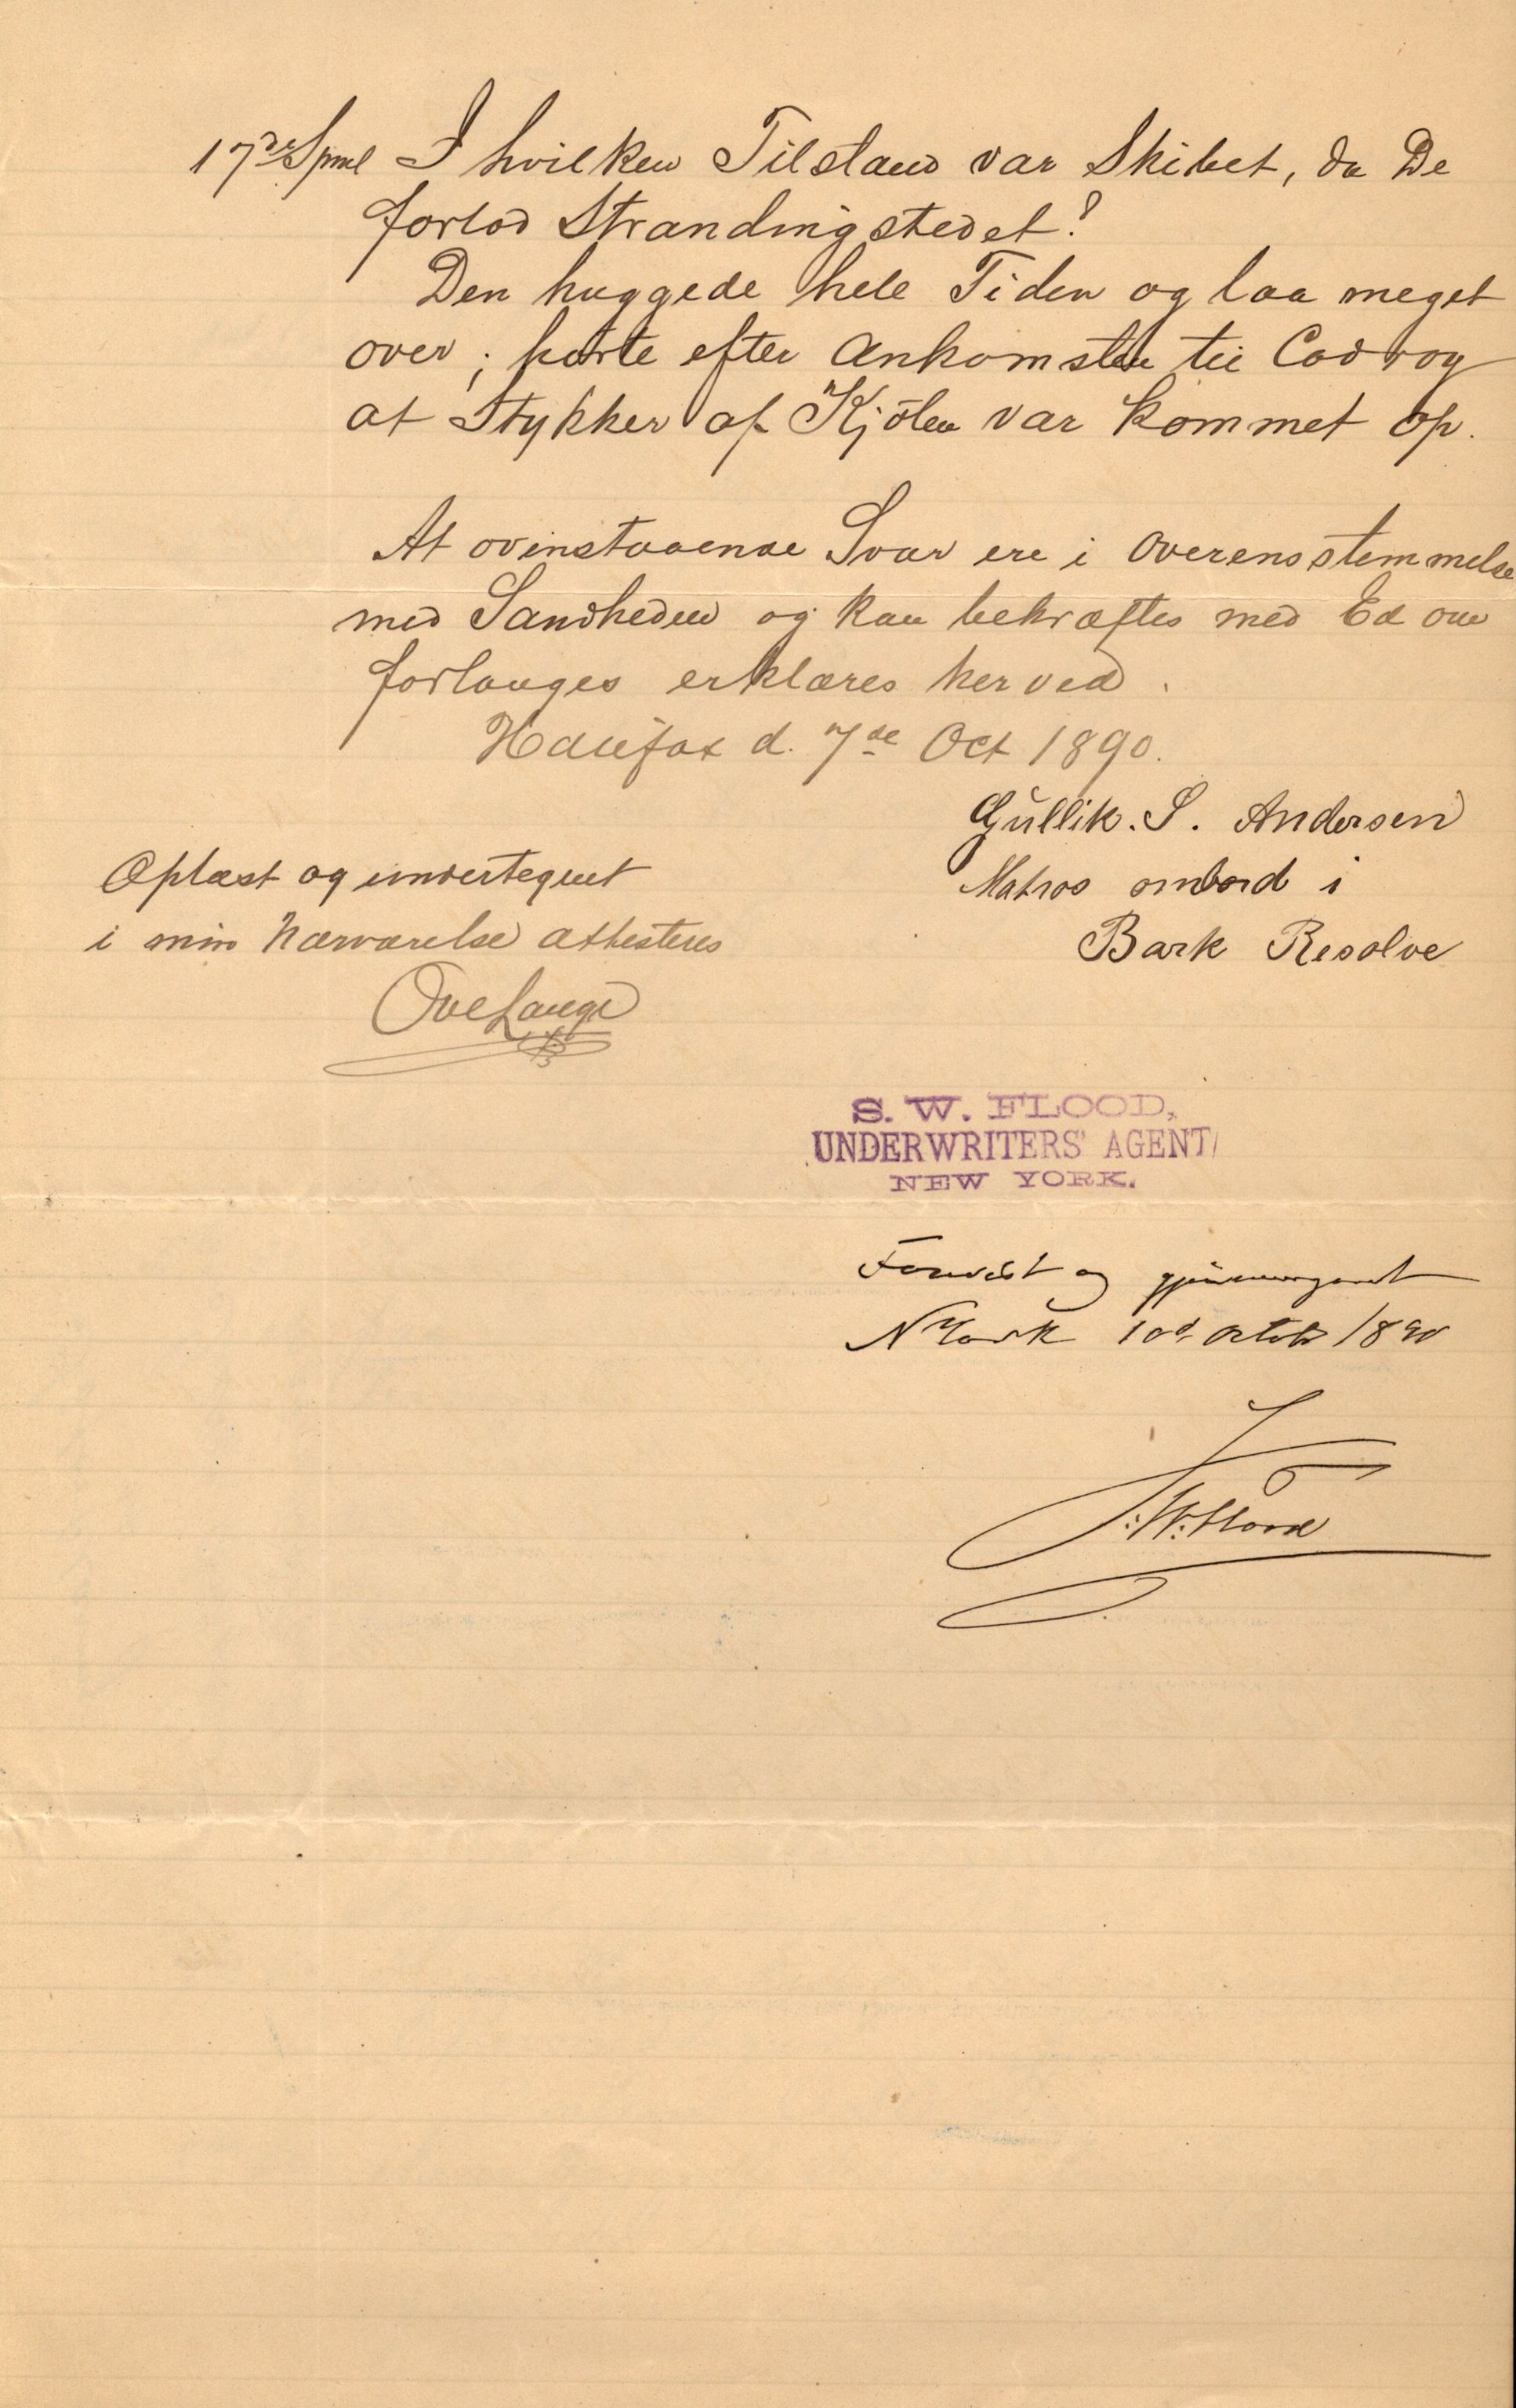 17de Spml I hvilken Tilstand var Skibet, da De
forlod Strandingstedet?
Den huggede hele Tiden og laa meget
over; hörte efter Ankomsten til Codroy
at Stykker af Kjölen var kommet op.
At ovenstaaende Svar ere i Overensstemmelse
med Sandheden og kan bekræftes med Ed om
forlanges erklæres herved.
Halifax d. 7de Oct 1890.
Gullik. S. Andersen
Matros ombord i
Bark Resolve
Oplæst og undertegnet
i min Nærværelse attesteres
Ove Lange
S. W. FLOOD,
UNDERWRITERS' AGENT
NEW YORK.
Forevist og gjennemgaaet
N York 10d. Octob 1890
S. W. Flood